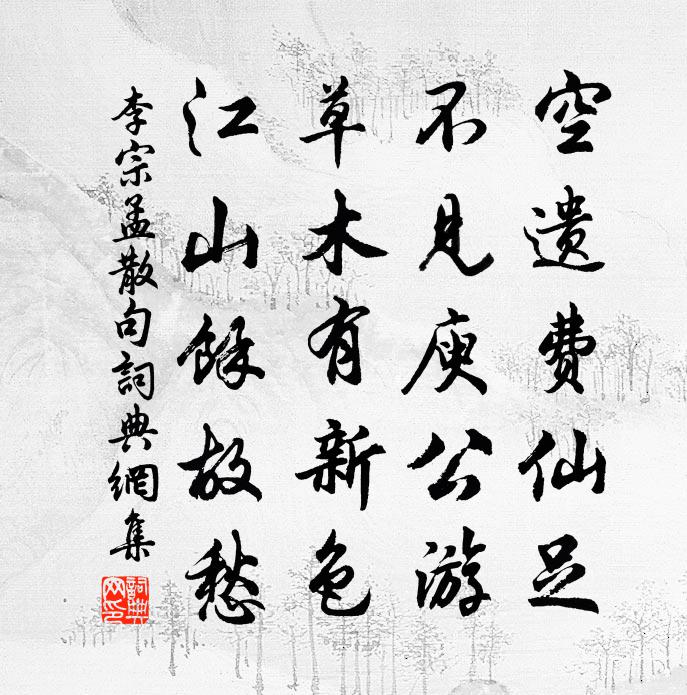 空遗费仙足
不见庾公游
草木有新色
江山餘故愁
李宗孟散句詞典網集
詞典網印